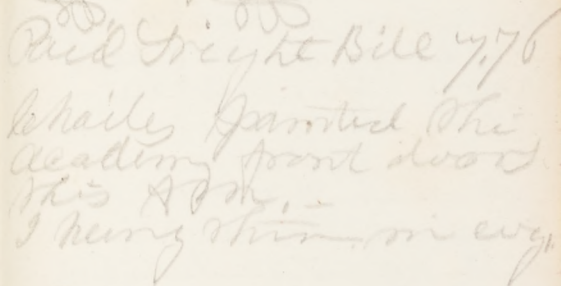 Paid Freight Bill 7.76
Charles painted the
academy front doors
this A.M.
I hung them in evg.